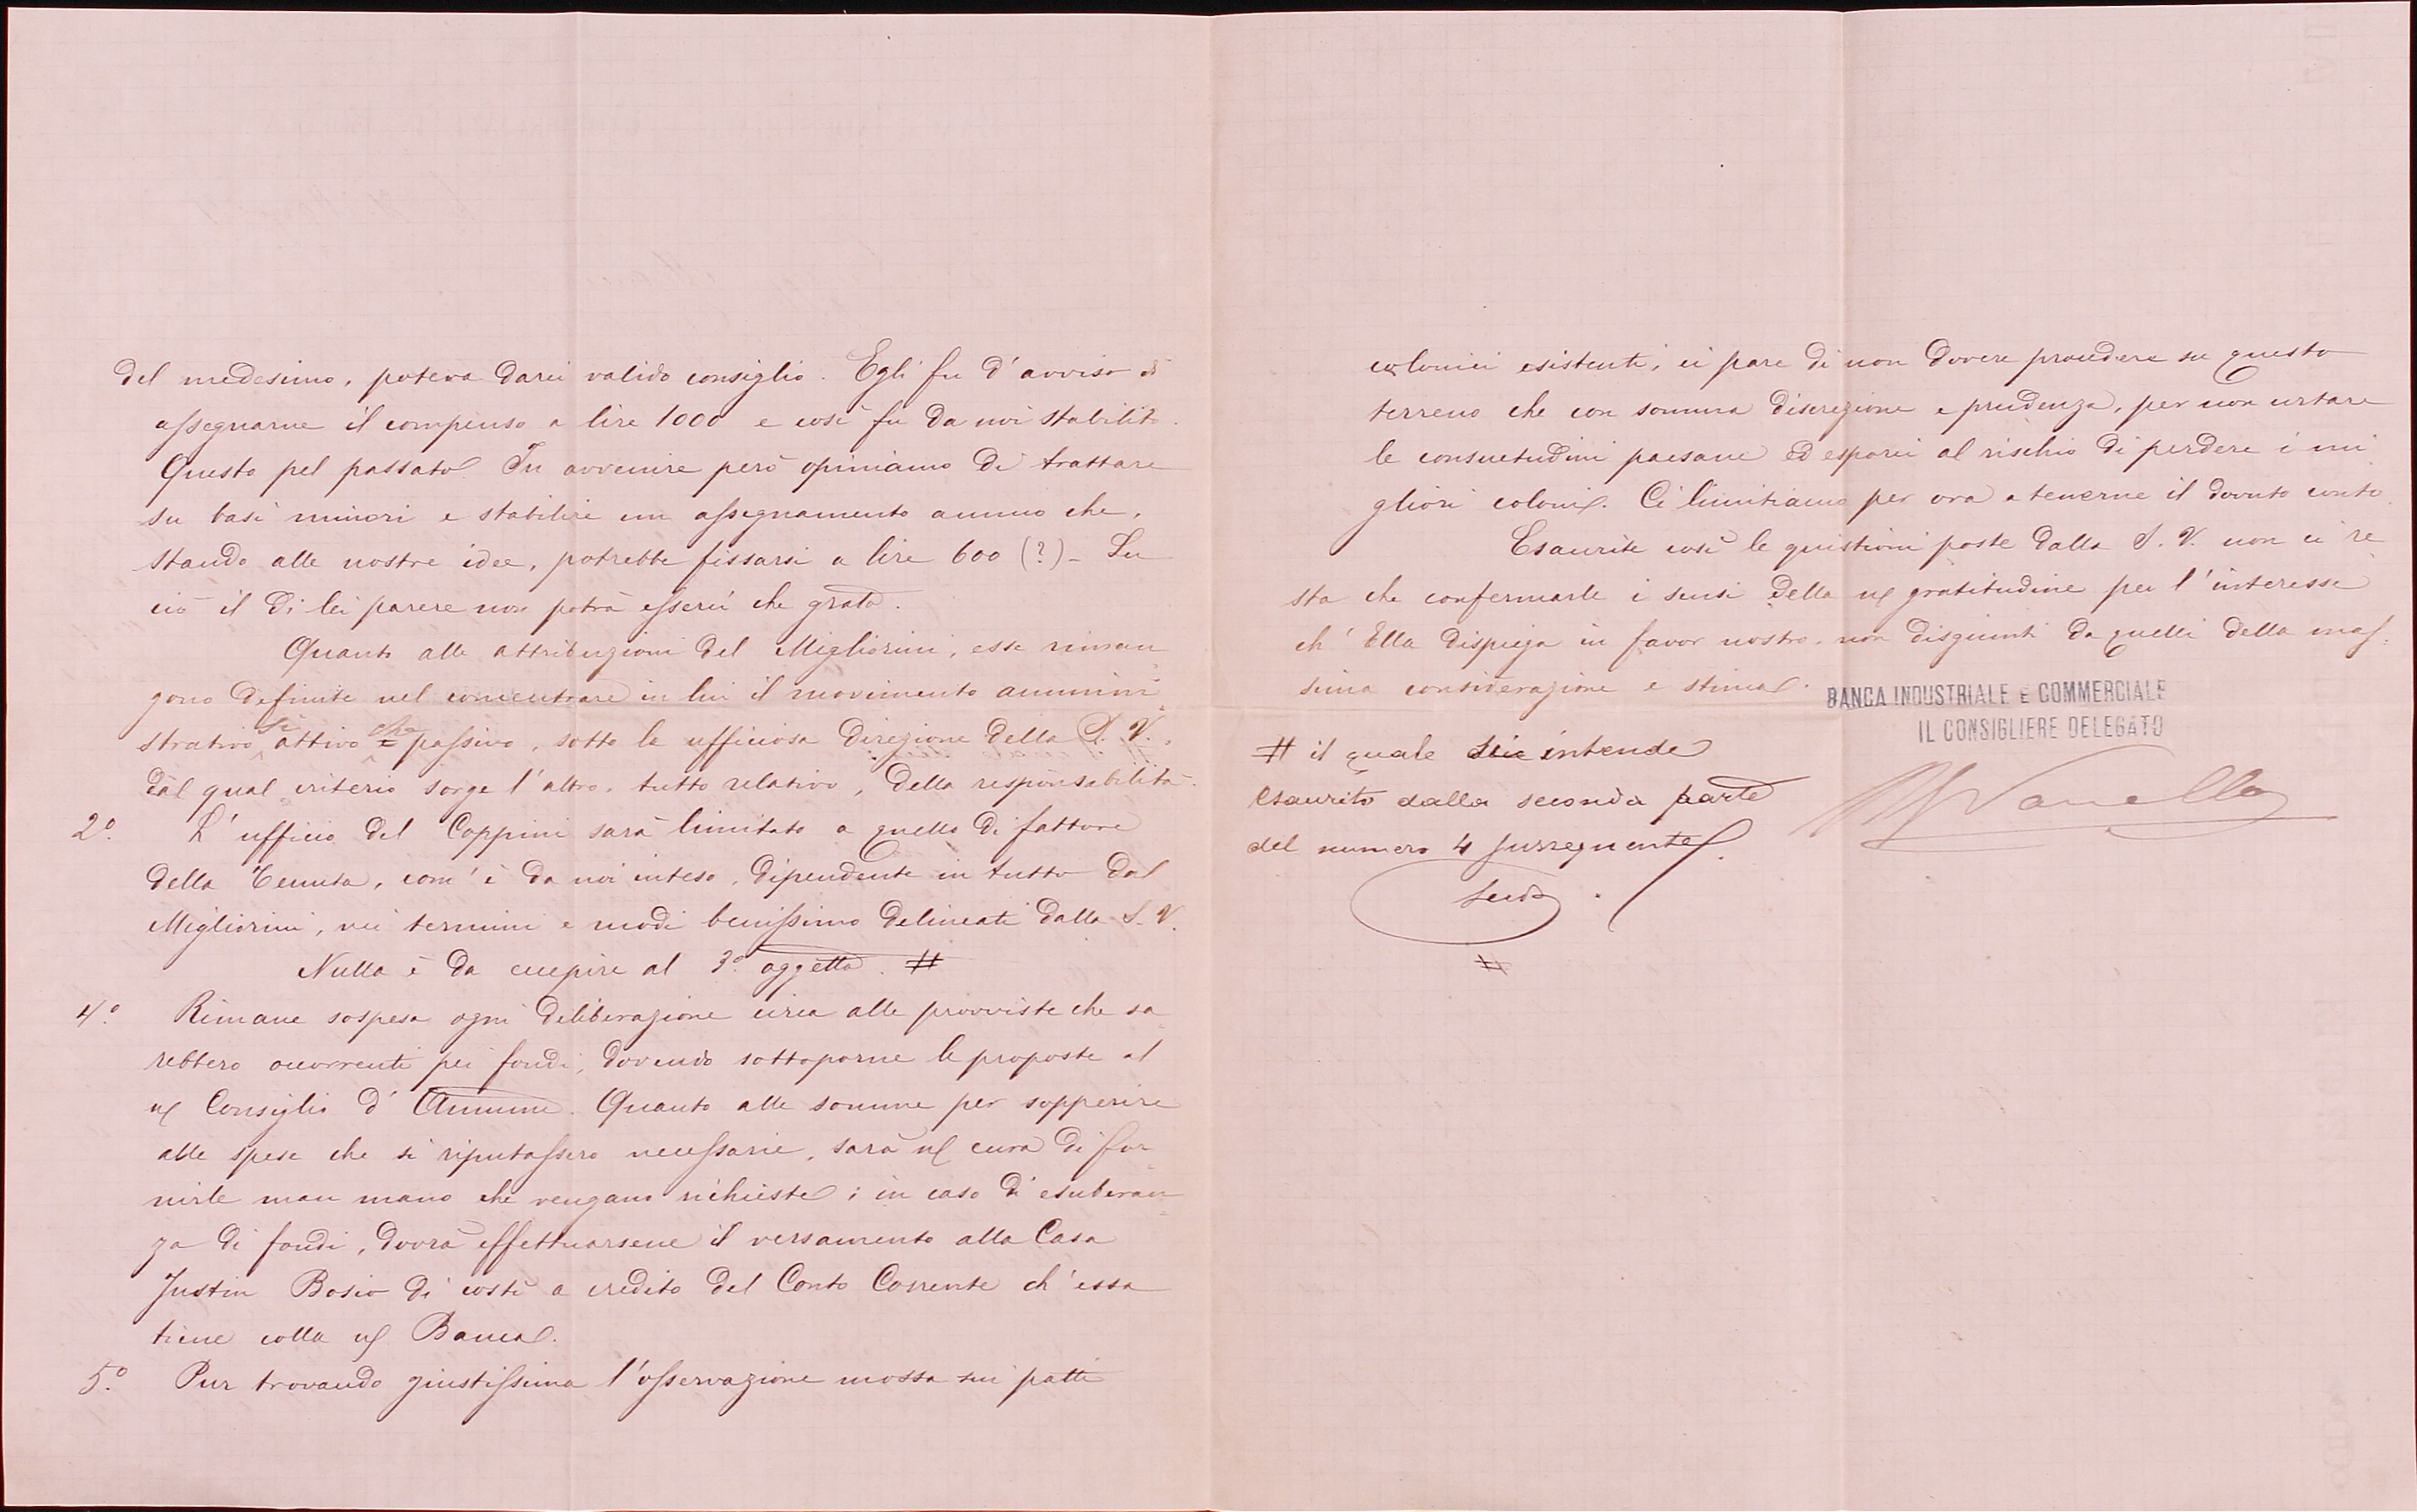 del medesimo, poteva darci valido consiglio. Egli fu d'avviso di
assegnarne il compenso a lire 1000 e così fu da noi stabilito.
Questo pel passato. In avvenire però opiniamo di trattare
su basi minori e stabilire un assegnamento annuo che,
stando alle nostre idee, potrebbe fissarsi a lire 600 (?) - Su
ciò il di lei parere non potrà esserci che grato.
Quanto alle attribuzioni del Migliorini, esse riman=
gono definite nel concentrare in lui il movimento ammini=
strativo sì attivo che passivo, sotto la ufficiosa direzione della S. V.,
dal qual criterio sorge l'altro, tutto relativo, della responsabilità.
2.° L'ufficio del Coppini sarà limitato a quello di fattore
della Tenuta, com'è da noi inteso, dipendente in tutto dal
Migliorini, nei termini e modi benissimo delineati dalla S. V.
Nulla è da eccepire al 3.° oggetto. #
4.° Rimane sospesa ogni deliberazione circa alle provviste che sa=
rebbero occorrenti pei fondi, dovendo sottoporne le proposte al
Consiglio d'Ammne. Quanto alle somme per sopperire
alle spese che si riputassero necessarie, sarà cura di for=
nirle man mano che vengano richieste; in caso di esuberan=
za di fondi, dovrà effettuarsene il versamento alla Casa
Justin Bosio di costì a credito del Conto Corrente ch'essa
tiene colla Banca.
5.° Pur trovando giustissima l'osservazione mossa sui patti
colonici esistenti, ci pare di non dovere procedere su questo
terreno che con somma discrezione e prudenza, per non urtare
le consuetudini paesane ed esporci al rischio di perdere i mi=
gliori coloni. Ci limitiamo per ora a tenerne il dovuto conto.
Esaurite così le quistioni poste dalla S. V. non ci re
sta che confermarle i sensi della gratitudine per l'interesse
ch'Ella dispiega in favor nostro, non disgiunti da quelli della mas=
sima considerazione e stima.
BANCA INDUSTRIALE E COMMERCIALE
IL CONSIGLIERE DELEGATO
# il quale intende
esaurito dalla seconda parte
del numero 4 susseguente.
#